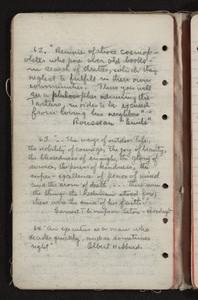 62. "Beware of those cosmop-
olites who pore over old books
in search of duties, which they
neglect to fulfil in their own
communities. Thus you will
see a philosopher admiring the
Tartars, in order to be excused
from loving his neighbors"
Rousseau "Emile"
63. "... The ways of outdoor life,
the nobility of courage, the joy of beauty,
the blessedness of enough, the glory of
service, the power of kindness, the
super-excellence of peace of mind
and the scorn of death, ... these were
the things the Redman stood for,
these were the sum of his faith".
Ernest Thompson Seton
64. "An executive is a man who
decides quickly and is sometimes
right" Elbert Hubbard